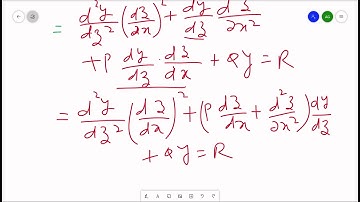 = d²y/dz² (dz/dx)² + dy/dz d²z/dx²
+ P dy/dz · dz/dx + Qy = R
= d²y/dz² (dz/dx)² + (P dz/dx + d²z/dx²) dy/dz
+ Qy = R